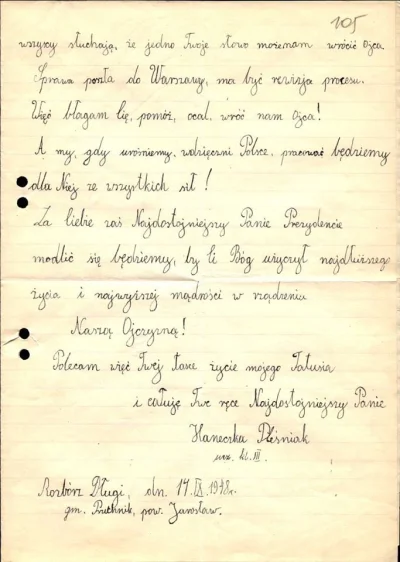 105
wszyscy słuchają, że jedno Twoje słowo może nam wrócić Ojca.
Sprawa poszła do Warszawy, ma być rewizja procesu.
Więc błagam Cię, pomóż, ocal, wróć nam Ojca!
A my, gdy urośniemy, wdzięczni Polsce, pracować będziemy
dla Niej ze wszystkich sił!
Za Ciebie zaś Najdostojniejszy Panie Prezydencie
modlić się będziemy, by Ci Bóg użyczył najdłuższego
życia i najwyższej mądrości w rządzeniu
Naszą Ojczyzną!
Polecam więc Twej łasce życie mojego Tatusia
i całuję Twe ręce Najdostojniejszy Panie
Haneczka Pleśniak
ucz. kl. III.
Rozbórz Długi, dn. 14.IX.1948r.
gm. Pruchnik, pow. Jarosław.